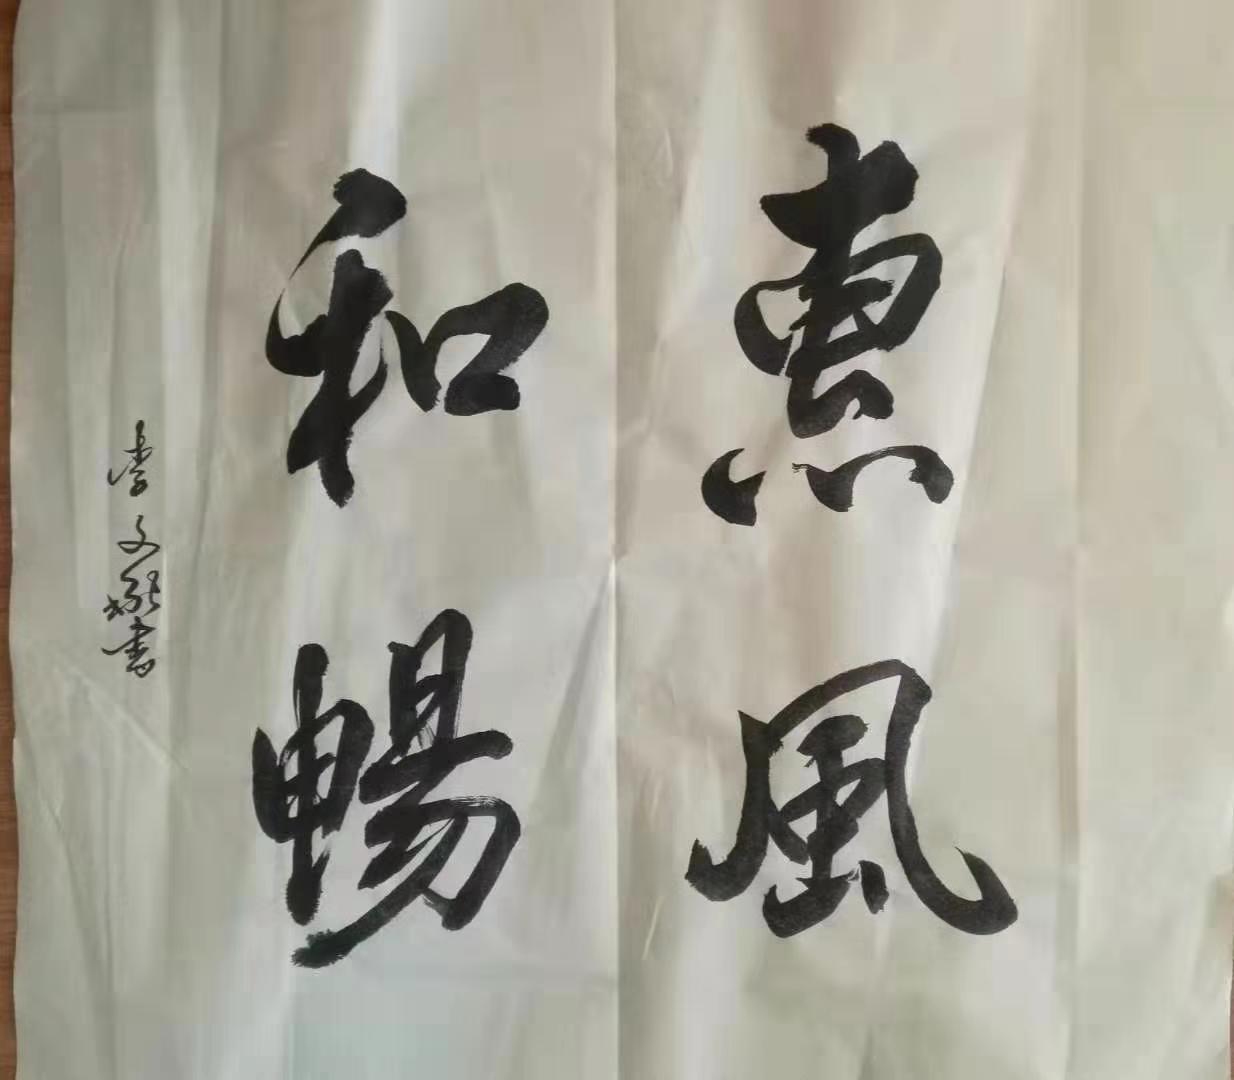 惠風
和暢
李文書